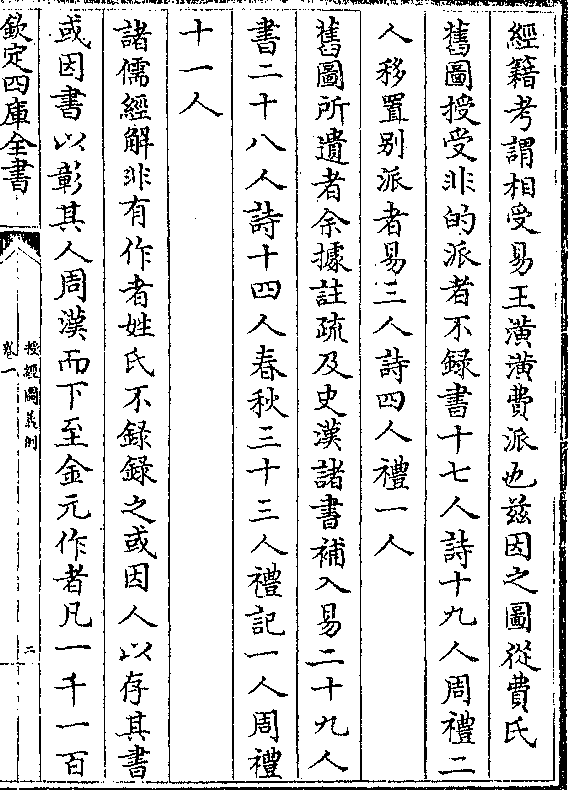 經籍考謂相受易王潢潢費派也兹因之圖從費氏
舊圖授受非的派者不録書十七人詩十九人周禮二
人移置别派者易三人詩四人禮一人
舊圖所遺者余據註疏及史漢諸書補入易二十九人
書二十八人詩十四人春秋三十三人禮記一人周禮
十一人
諸儒經解非有作者姓氏不録録之或因人以存其書
或因書以彰其人周漢而下至金元作者凡一千一百
欽定四庫全書
授經圖義例
卷一
二